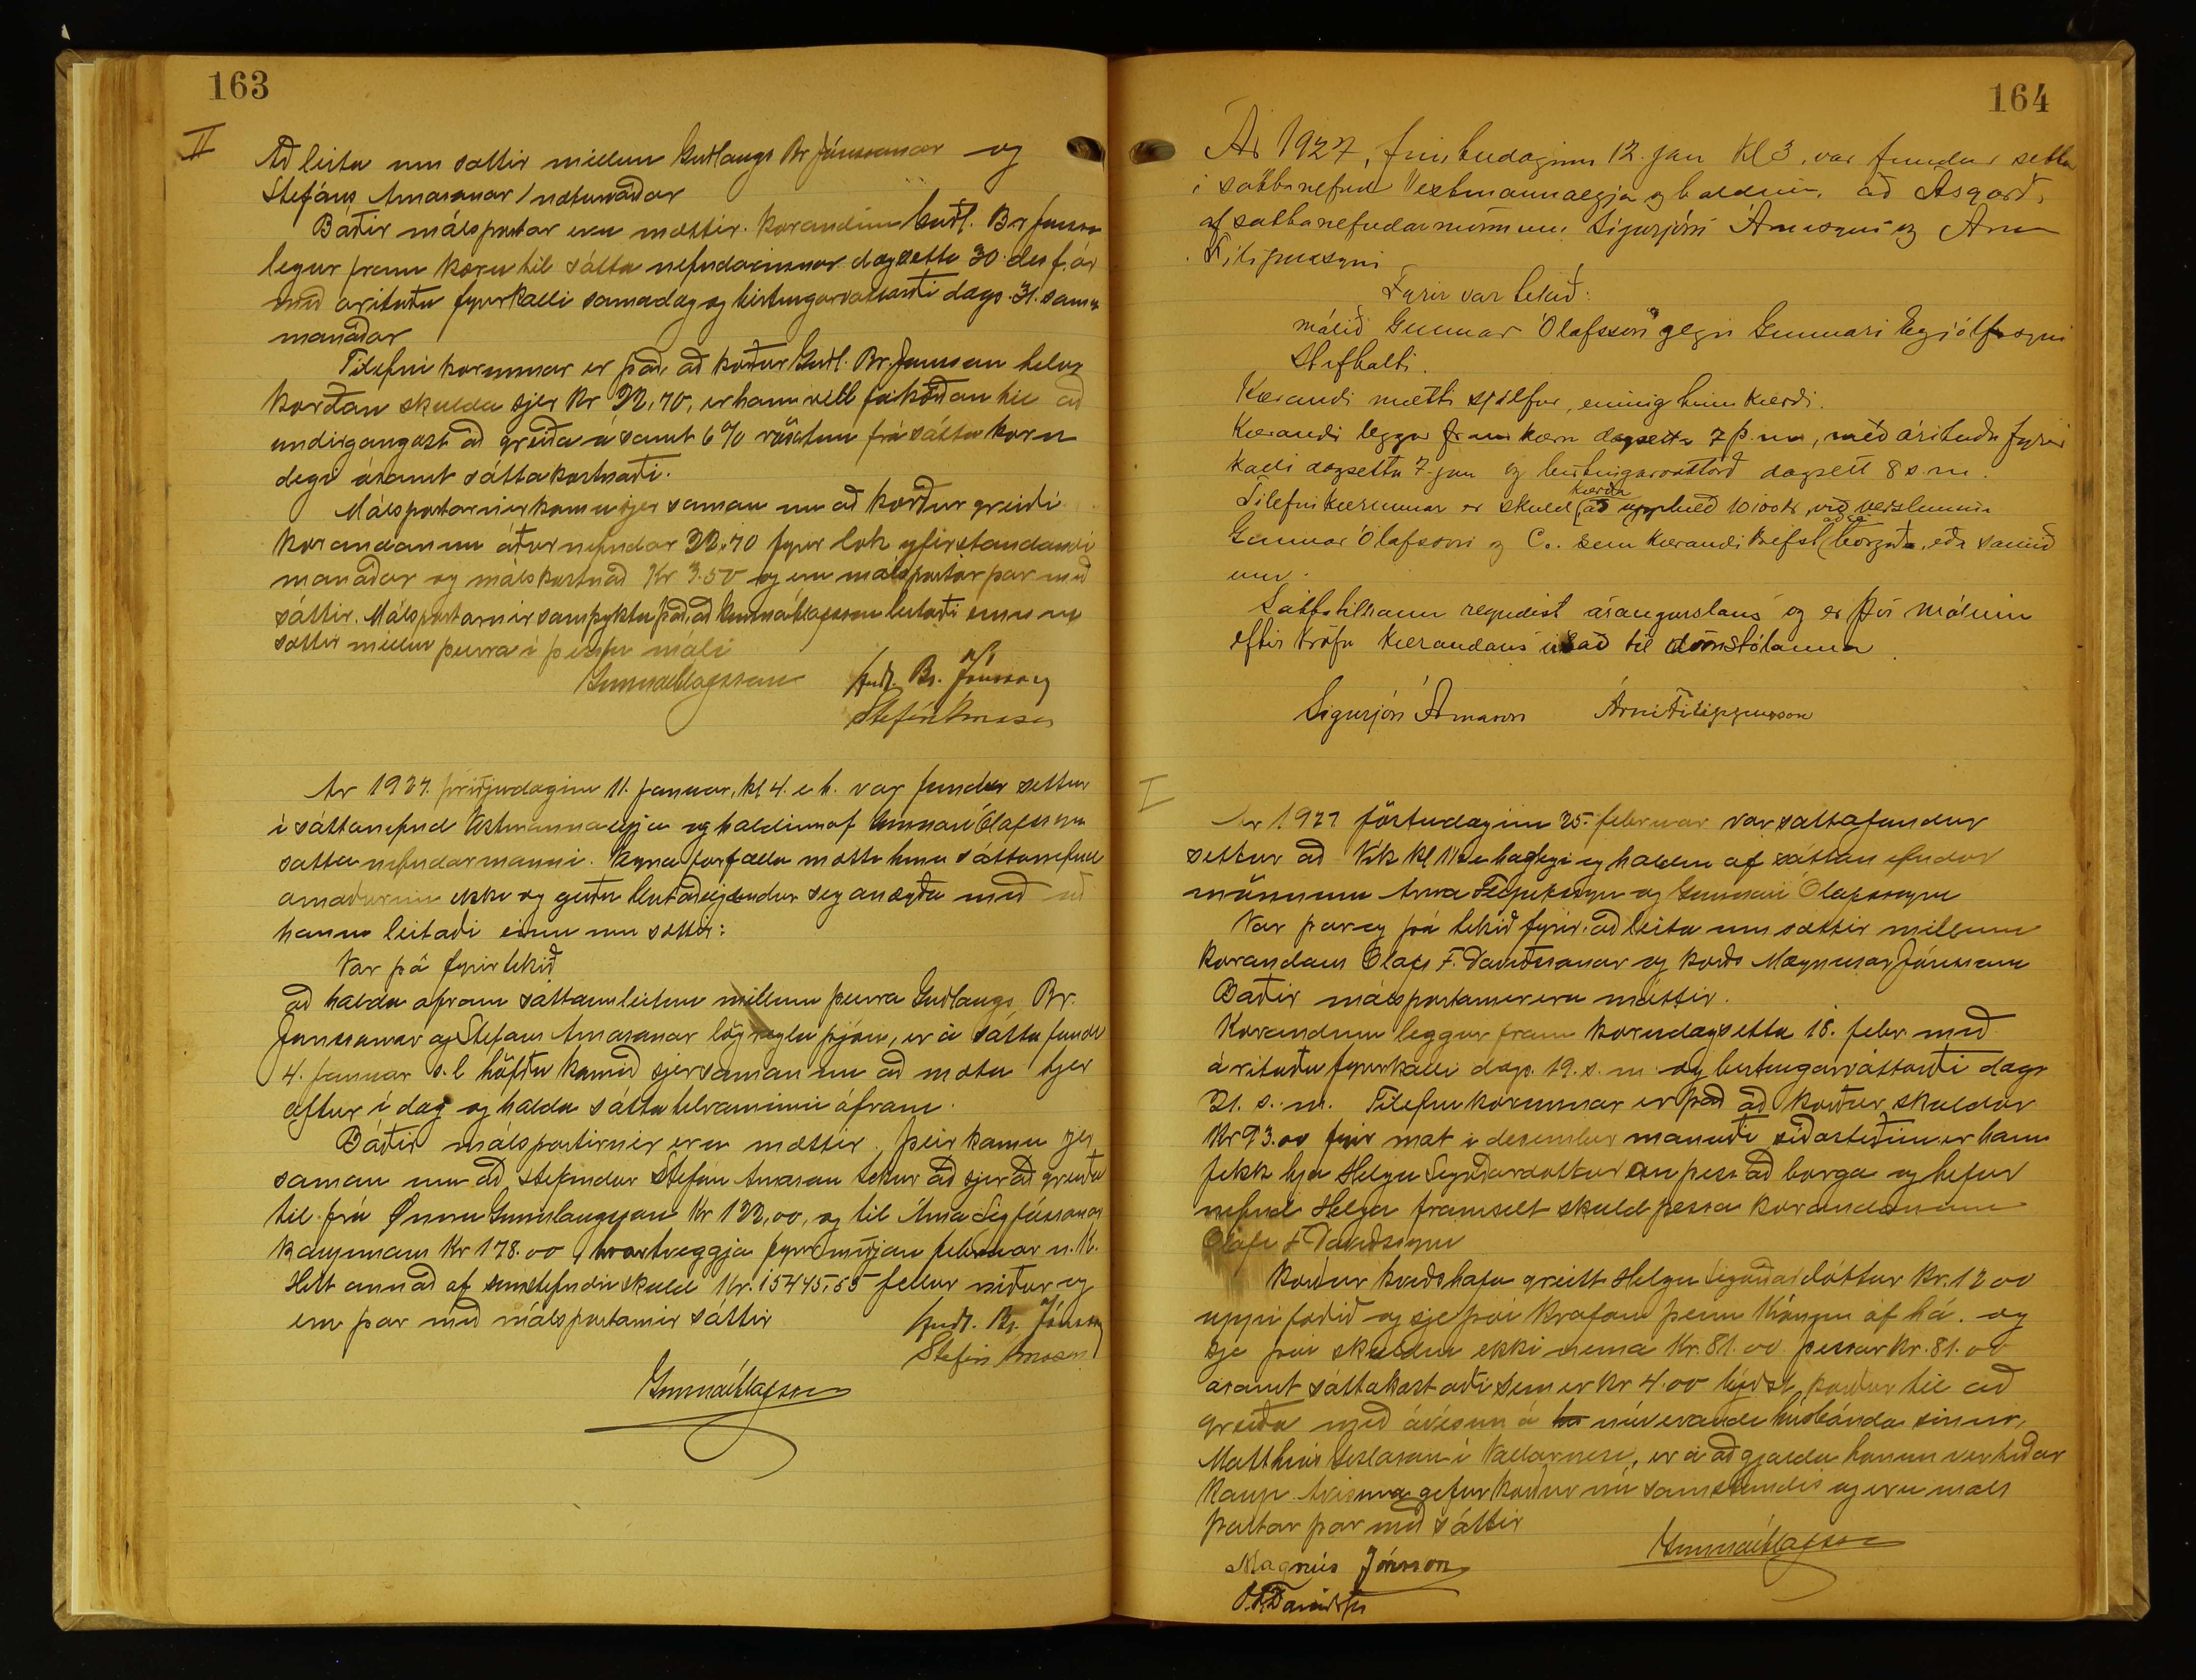 163
II
Að leita um sættir millum Guðlaugs Br Jónssonar og
Stefáns Árnasonar / næturvaðar
Báðir málspartar eru mættir. Kærandinn Guðl. Br Jónsson
legur fram kæru til sátta nefndarinnar dagsetta 30. des f. ár
með árituðu fyrirkalli samadag og birtingarvottorði dags. 31. sama
mánaðar
Tilefni kærunnar er það, að kærður Guðl. Br. Jónsson telur
kærðan skulda sjer kr 22,70, er hann vill fá kærðan til að
undirgangast að greiða ásamt 6% vöxtum frá sátta kæru
degi ásamt sáttakostnaði.
Málspartarnir komu sjer saman um að kærður greiði
kærandanum áður nefndar 22.70 fyrir lok yfirstandandi
mánaðar og málskostnað Kr 3.50 og eru málspartar þar með
sáttir. Málspartarnir samþyktu það, að Gunnar Ólafsson leitaði einn um
sættir millum þeirra í þessu máli
Gunnar Ólafsson Guðl. Br. Jónsson
Stefán Árnason
Ár 1927. þriðjudaginn 11. Janúar, kl 4. e h. var fundur settur
í sáttanefnd Vestmannaeyja og haldinn af Gunnari Ólafssyni
sátta nefndarmanni. Vegna forfalla mætti hinn sáttanefnd
armaðurinn ekki og gerðu hlutaðeigendur sig ánægða með að
hann leitaði einn um sættir:
Var þá fyrir tekið
að halda áfram sáttaumleitun millum þeirra Guðlaugs Br.
Jónssonar og Stefáns Árnasonar lögregluþjóns, er á sátta fundi
4. Janúar s. l höfðu komið sjer saman um að mæta hjer
aftur í dag og halda sátta tilrauninni áfram.
Báðir málspartirnir eru mættir. Þeir komu sjer
saman um að stefndur Stefán Árnason tekur að sjer að greiða
til frú Önnu Gunnlaugsson Kr 122,00, og til Árna Sigfússonar
kaupmanns Kr 178.00, hvortveggja fyrir miðjan febrúar n. k.
Hitt annað af umstefndri skuld kr. 15445,55 fellur niður og
eru þar með málspartarnir sáttir
Guðl. Br. Jónsson
Stefán Árnason
Gunnar Ólafsson
164
Ár 1927, fimtudaginn 12. jan Kl 3, var fundur settur
í sáttanefnd Vestmannaeyja og haldinn, að Ásgarði,
af sáttanefndarmönnum Sigurjóni Árnasyni og Árna
Filipussyni
Fyrir var tekið:
málið Gunnar Ólafsson gegn Gunnari Eyjólfssyni
Stífholti.
Kærandi mætti sjálfur, einnig hinn kærði.
Kærandi leggur fram kæru dagsetta 7 þ. m, með árituðu fyrir
kalli dagsettu 7. jan og birtingarvottorð dagsett 8 s. m.
Tilefni kærunnar er skuld kærða að upphæð 10100 kr, við verslunina
Gunnar Ólafsson og Co. sem kærandi krefst að sé borguð, eða samið
um.
Sáttatilraun reyndist árangurslaus og er því málinu
eftir kröfu kærandans vísað til dómstólanna.
Sigurjón Árnason Árni Filippusson
I
Ár 1927 föstudaginn 25. febrúar var sáttafundur
settur að Vík kl 11 hádegi og haldin af sáttanefndar
mönnum Árna Filipussyni og Gunnari Ólafssyni
Var þar og þá tekið fyrir: að leita um sættir millum
kærandans Ólafs F. Davíðssonar og kærðs Magnúsar Jónssonar
Báðir málspartarnir eru mættir.
Kærandinn leggur fram kæru dagsetta 18. febr. með
árituðu fyrirkalli dags. 19. s. m. og birtingarvottorði dags
21. s. m. Tilefni kærunnar er það að kærður skuldar
Kr 93.00 fyrir mat í desember mánuði síðastliðinn er hann
fekk hjá Helgu Sigurðardóttur án þess að borga og hefur
nefnd Helga framselt skuld þessa kærandanum
Ólafi F Davíðssyni
Kærður kveðst hafa greitt Helgu Sigurðardóttur kr. 12 00
uppí fæðið og sje því krafan þeim krónum of há. og
sje því skuldin ekki nema Kr. 81.00 þessar kr. 81.00
ásamt sáttakostnaði sem er kr 4.00 býðst kærður til að
greiða með ávísun á núverandi húsbónda sinn,
Matthías Gíslason í Vallarnesi, er á að gjalda honum vertíðar
kaup. Ávísun gefur kærður nú samstundis og eru máls
partar þar með sáttir
Gunnar Ólafsson
Magnús Jónsson
Ó. F. Davíðsson